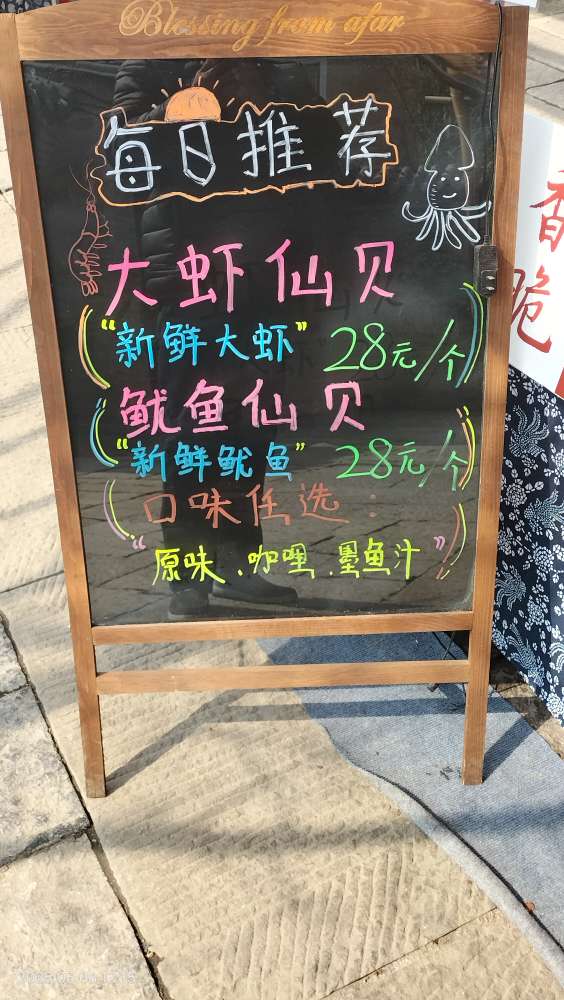 Blessing from afar
每日推荐
大虾仙贝
“新鲜大虾” 28元/个
鱿鱼仙贝
“新鲜鱿鱼” 28元/个
口味任选：
“原味、咖哩、墨鱼汁”
香
脆